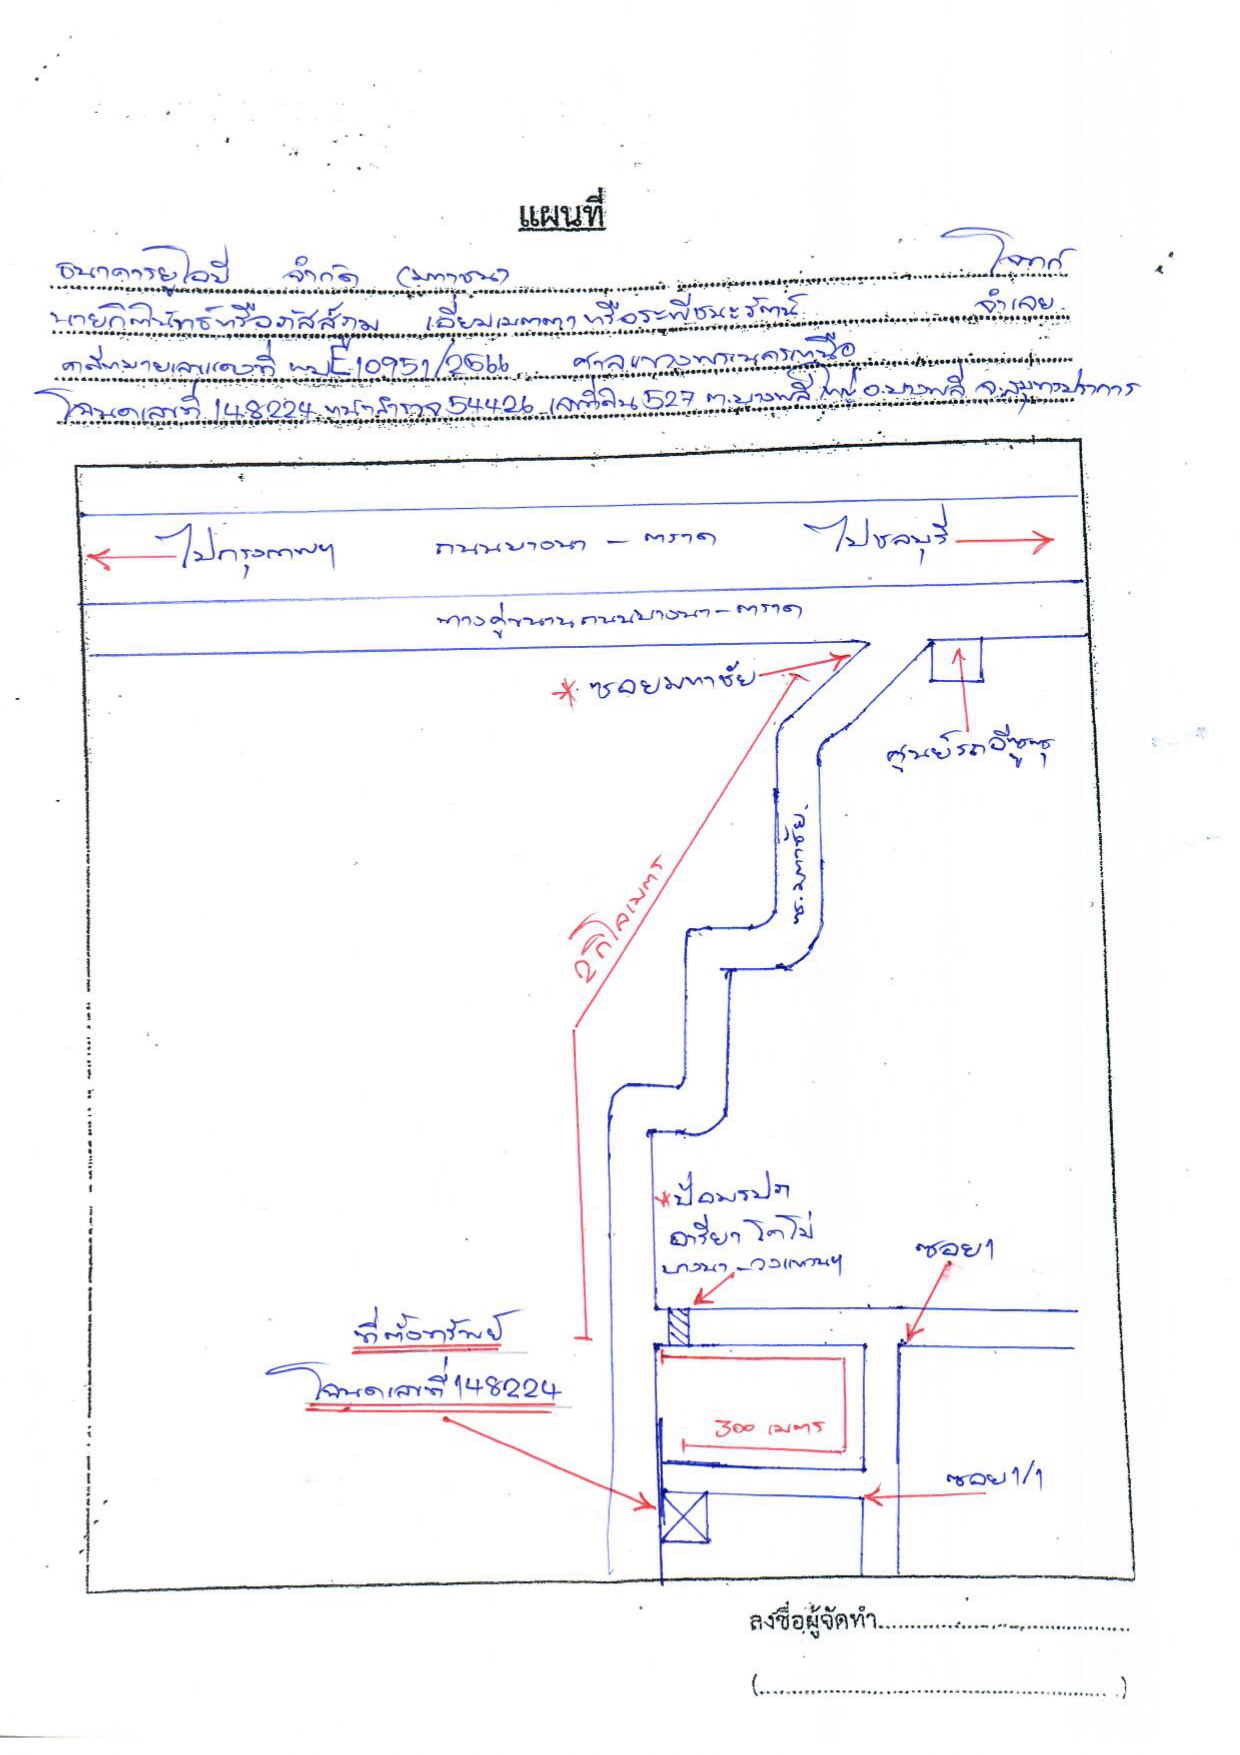 แผนที่
ธนาคารยูโอบี จำกัด (มหาชน) โจทก์
นายกิตินันทธ์หรือภัสส์ภูม เอี่ยมเมตตาหรือระพีชนะรัตน์ จำเลย
คดีหมายเลขแดงที่ ผบE10951/2566 ศาลแขวงพระนครเหนือ
โฉนดเลขที่ 148224 หน้าสำรวจ 54426 เลขที่ดิน 527 ต.บางพลีใหญ่ อ.บางพลี จ.สมุทรปราการ
ไปกรุงเทพฯ ถนนบางนา - ตราด ไปชลบุรี
ทางคู่ขนานถนนบางนา-ตราด
* ซอยมหาชัย
ศูนย์รถอีซูซุ
ซ.มหาชัย.
2 กิโลเมตร
* ป้อมรปภ
อารียา โคโม่
บางนา - วงแหวนฯ
ซอย 1
ที่ตั้งทรัพย์
โฉนดเลขที่ 148224
300 เมตร
ซอย 1/1
ลงชื่อผู้จัดทำ
(....................)